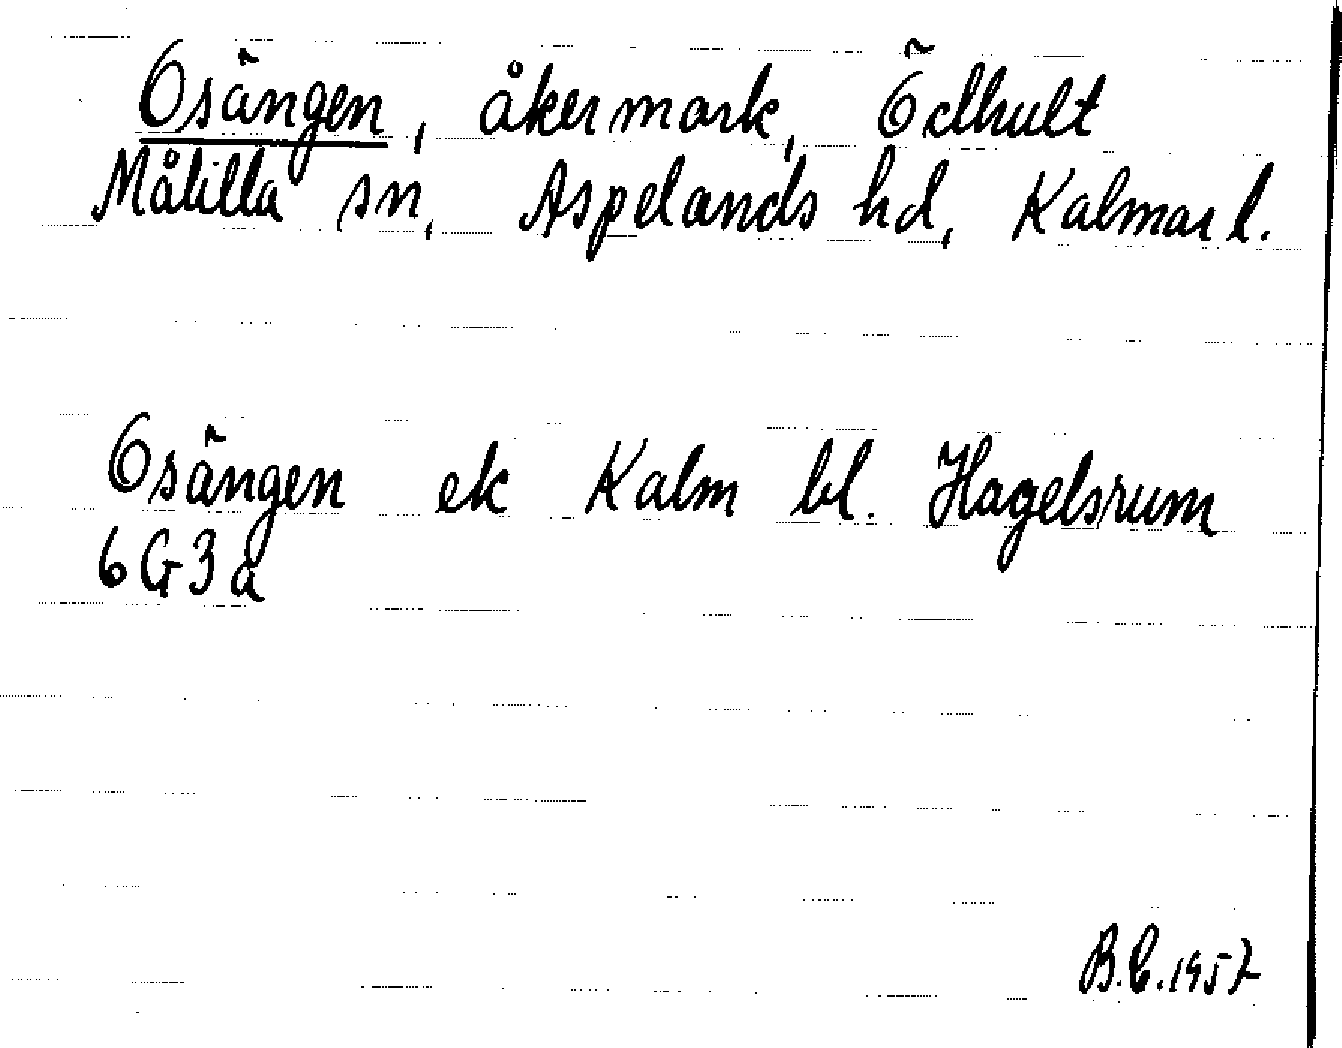 Osängen, åkermark, Ödhult
Målilla sn, Aspelands hd, Kalmar l.
Osängen ek Kalm bl. Hagelsrum
6G3a
B.E.1957